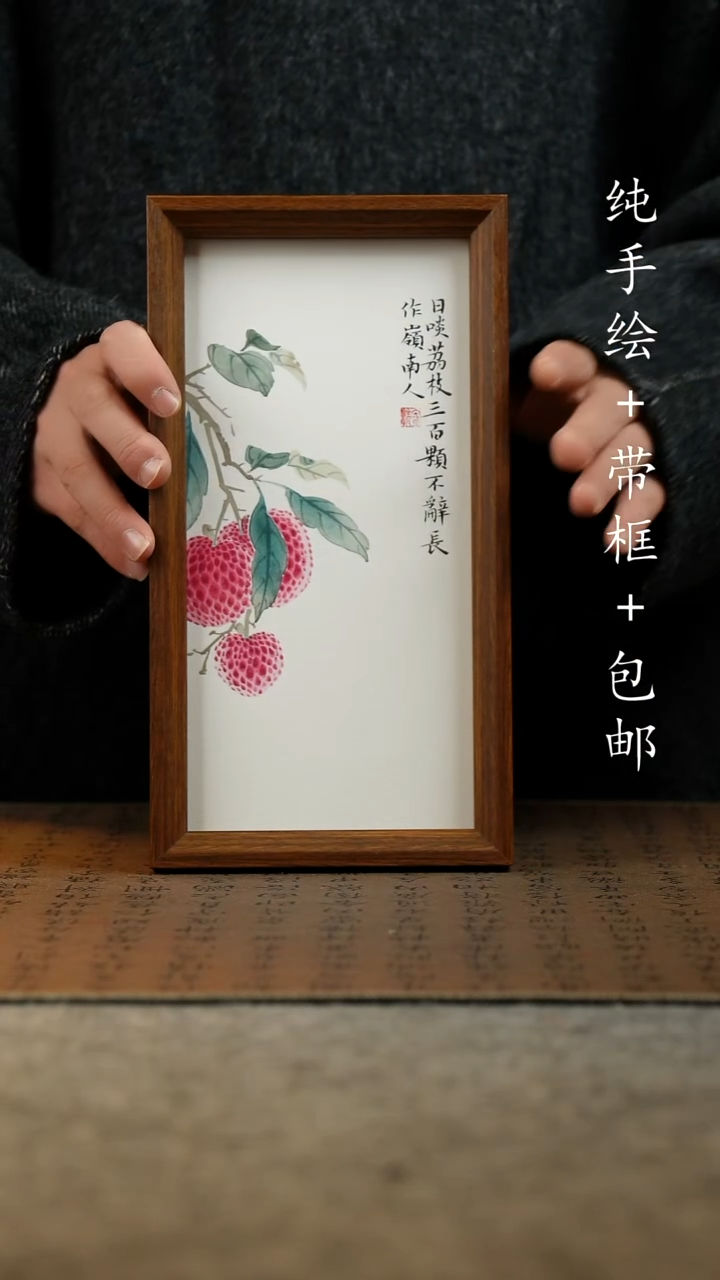 日啖荔枝三百顆不辭長
作嶺南人
纯手绘+带框+包邮